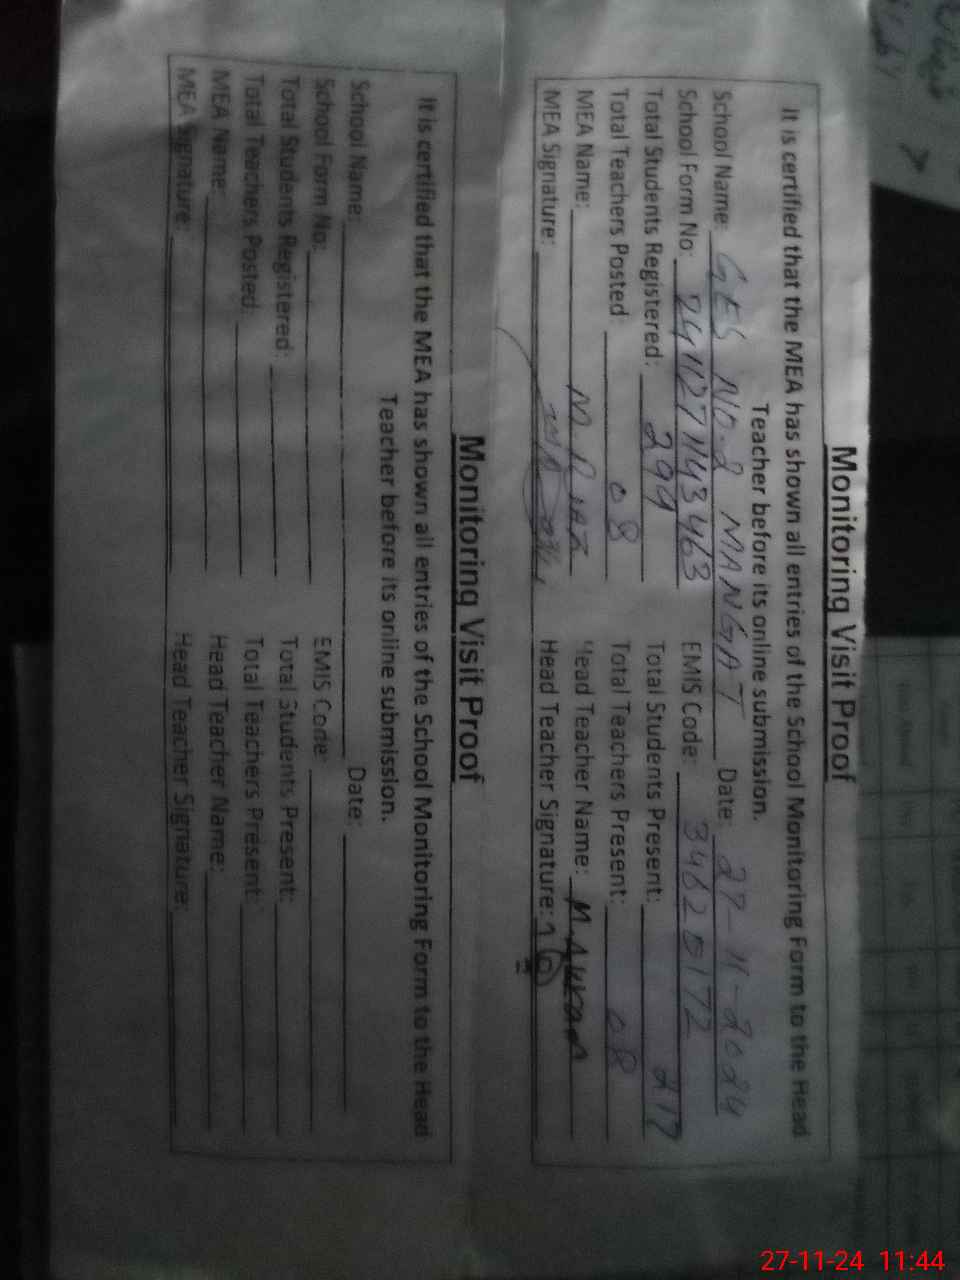 Monitoring Visit Proof
It is certified that the MEA has shown all entries of the School Monitoring Form to the Head
Teacher before its online submission.
School Name: GES NO-2 MANGAT Date: 27-11-2024
School Form No: 241127143463 EMIS Code: 34620172
Total Students Registered: 299 Total Students Present: 217
Total Teachers Posted 08 Total Teachers Present: 08
MEA Name: M. Riaz Head Teacher Name: M. Akram
MEA Signature: Head Teacher Signature:
Monitoring Visit Proof
It is certified that the MEA has shown all entries of the School Monitoring Form to the Head
Teacher before its online submission.
School Name: Date:
School Form No: EMIS Code:
Total Students Registered: Total Students Present:
Total Teachers Posted: Total Teachers Present:
MEA Name: Head Teacher Name:
MEA Signature: Head Teacher Signature:
27-11-24 11:44